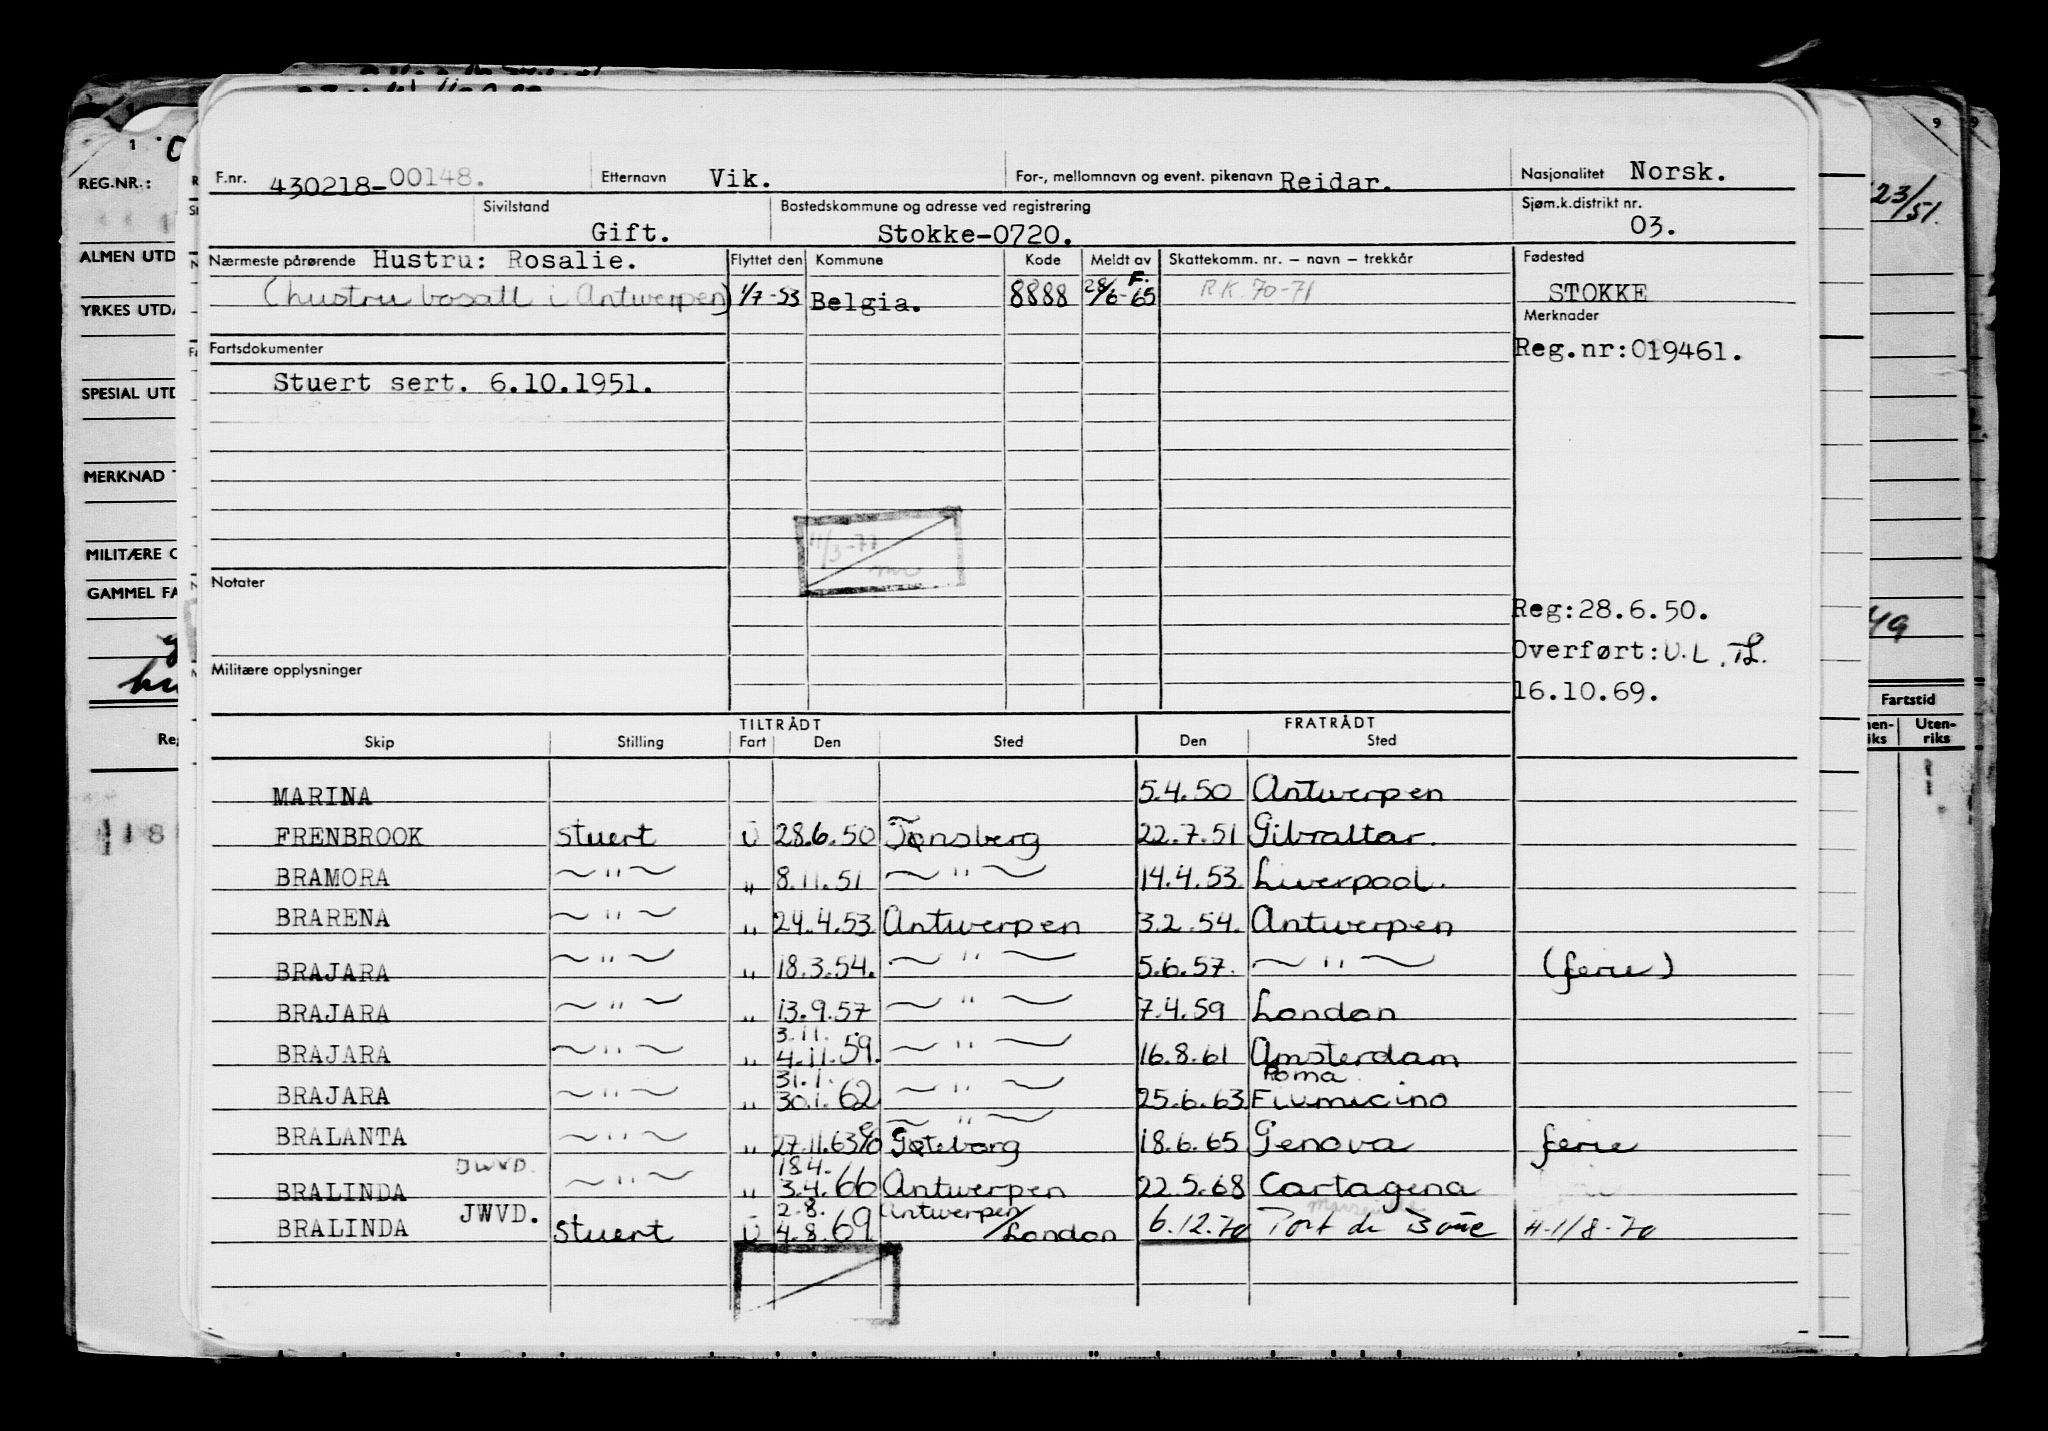 F.nr. 430218-00148. Etternavn Vik. For-, mellomnavn og event. pikenavn Reidar. Nasjonalitet Norsk.
Sivilstand Gift. Bostedskommune og adresse ved registrering Stokke-0720. Sjøm.k.distrikt nr. 03.
Nærmeste pårørende Hustru: Rosalie. Flyttet den Kommune Kode Meldt av Skattekomm. nr. – navn – trekkår Fødested
(hustru bosatt i Antwerpen) 1/7-53 Belgia. 8888 28/6-65 F. R.K. 70-71 STOKKE
Merknader
Fartsdokumenter Reg.nr:019461.
Stuert sert. 6.10.1951.
11/3-77
Notater
Reg:28.6.50.
Overført:U.L.
Militære opplysninger
16.10.69.
TILTRÅDT FRATRÅDT
Skip Stilling Fart Den Sted Den Sted
MARINA 5.4.50 Antwerpen
FRENBROOK stuert U 28.6.50 Tønsberg 22.7.51 Gibraltar.
BRAMORA ~ " ~ " 8.11.51 ~ " ~ 14.4.53 Liverpool.
BRARENA ~ " ~ " 24.4.53 Antwerpen 3.2.54. Antwerpen
BRAJARA ~ " ~ " 18.3.54. ~ " ~ 5.6.57. ~ " ~ (ferie)
BRAJARA ~ " ~ " 13.9.57 ~ " ~ 7.4.59 London
3.11.
BRAJARA ~ " ~ " 4.11.59. ~ " ~ 16.8.61 Amsterdam
31.1. Roma
BRAJARA ~ " ~ " 30.1.62 ~ " ~ 25.6.63 Fiumicino
~ " ~
BRALANTA ~ " ~ " 27.11.63 Gøteborg 18.6.65 Genova ferie
JWVD. 18.4.
BRALINDA ~ " ~ " 3.4.66 Antwerpen 22.5.68 Cartagena
2.8. Antwerpen Marseille
BRALINDA JWVD. stuert U 4.8.69 /London 6.12.70 Port de Bouc H-1/8-70
REG.NR.:
ALMEN UTD
YRKES UTD
SPESIAL UTD
MERKNAD
MILITÆRE
GAMMEL FA
23/51.
49
Fartstid
Uten-
riks